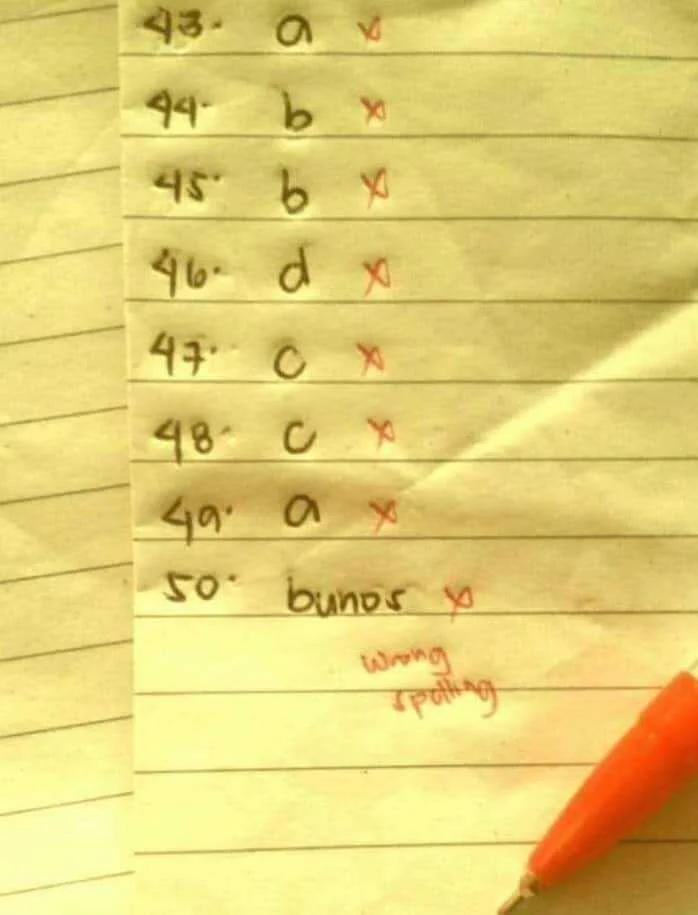 43. a x
44. b x
45. b x
46. d x
47. c x
48. c x
49. a x
50. bunos x
wrong
spelling